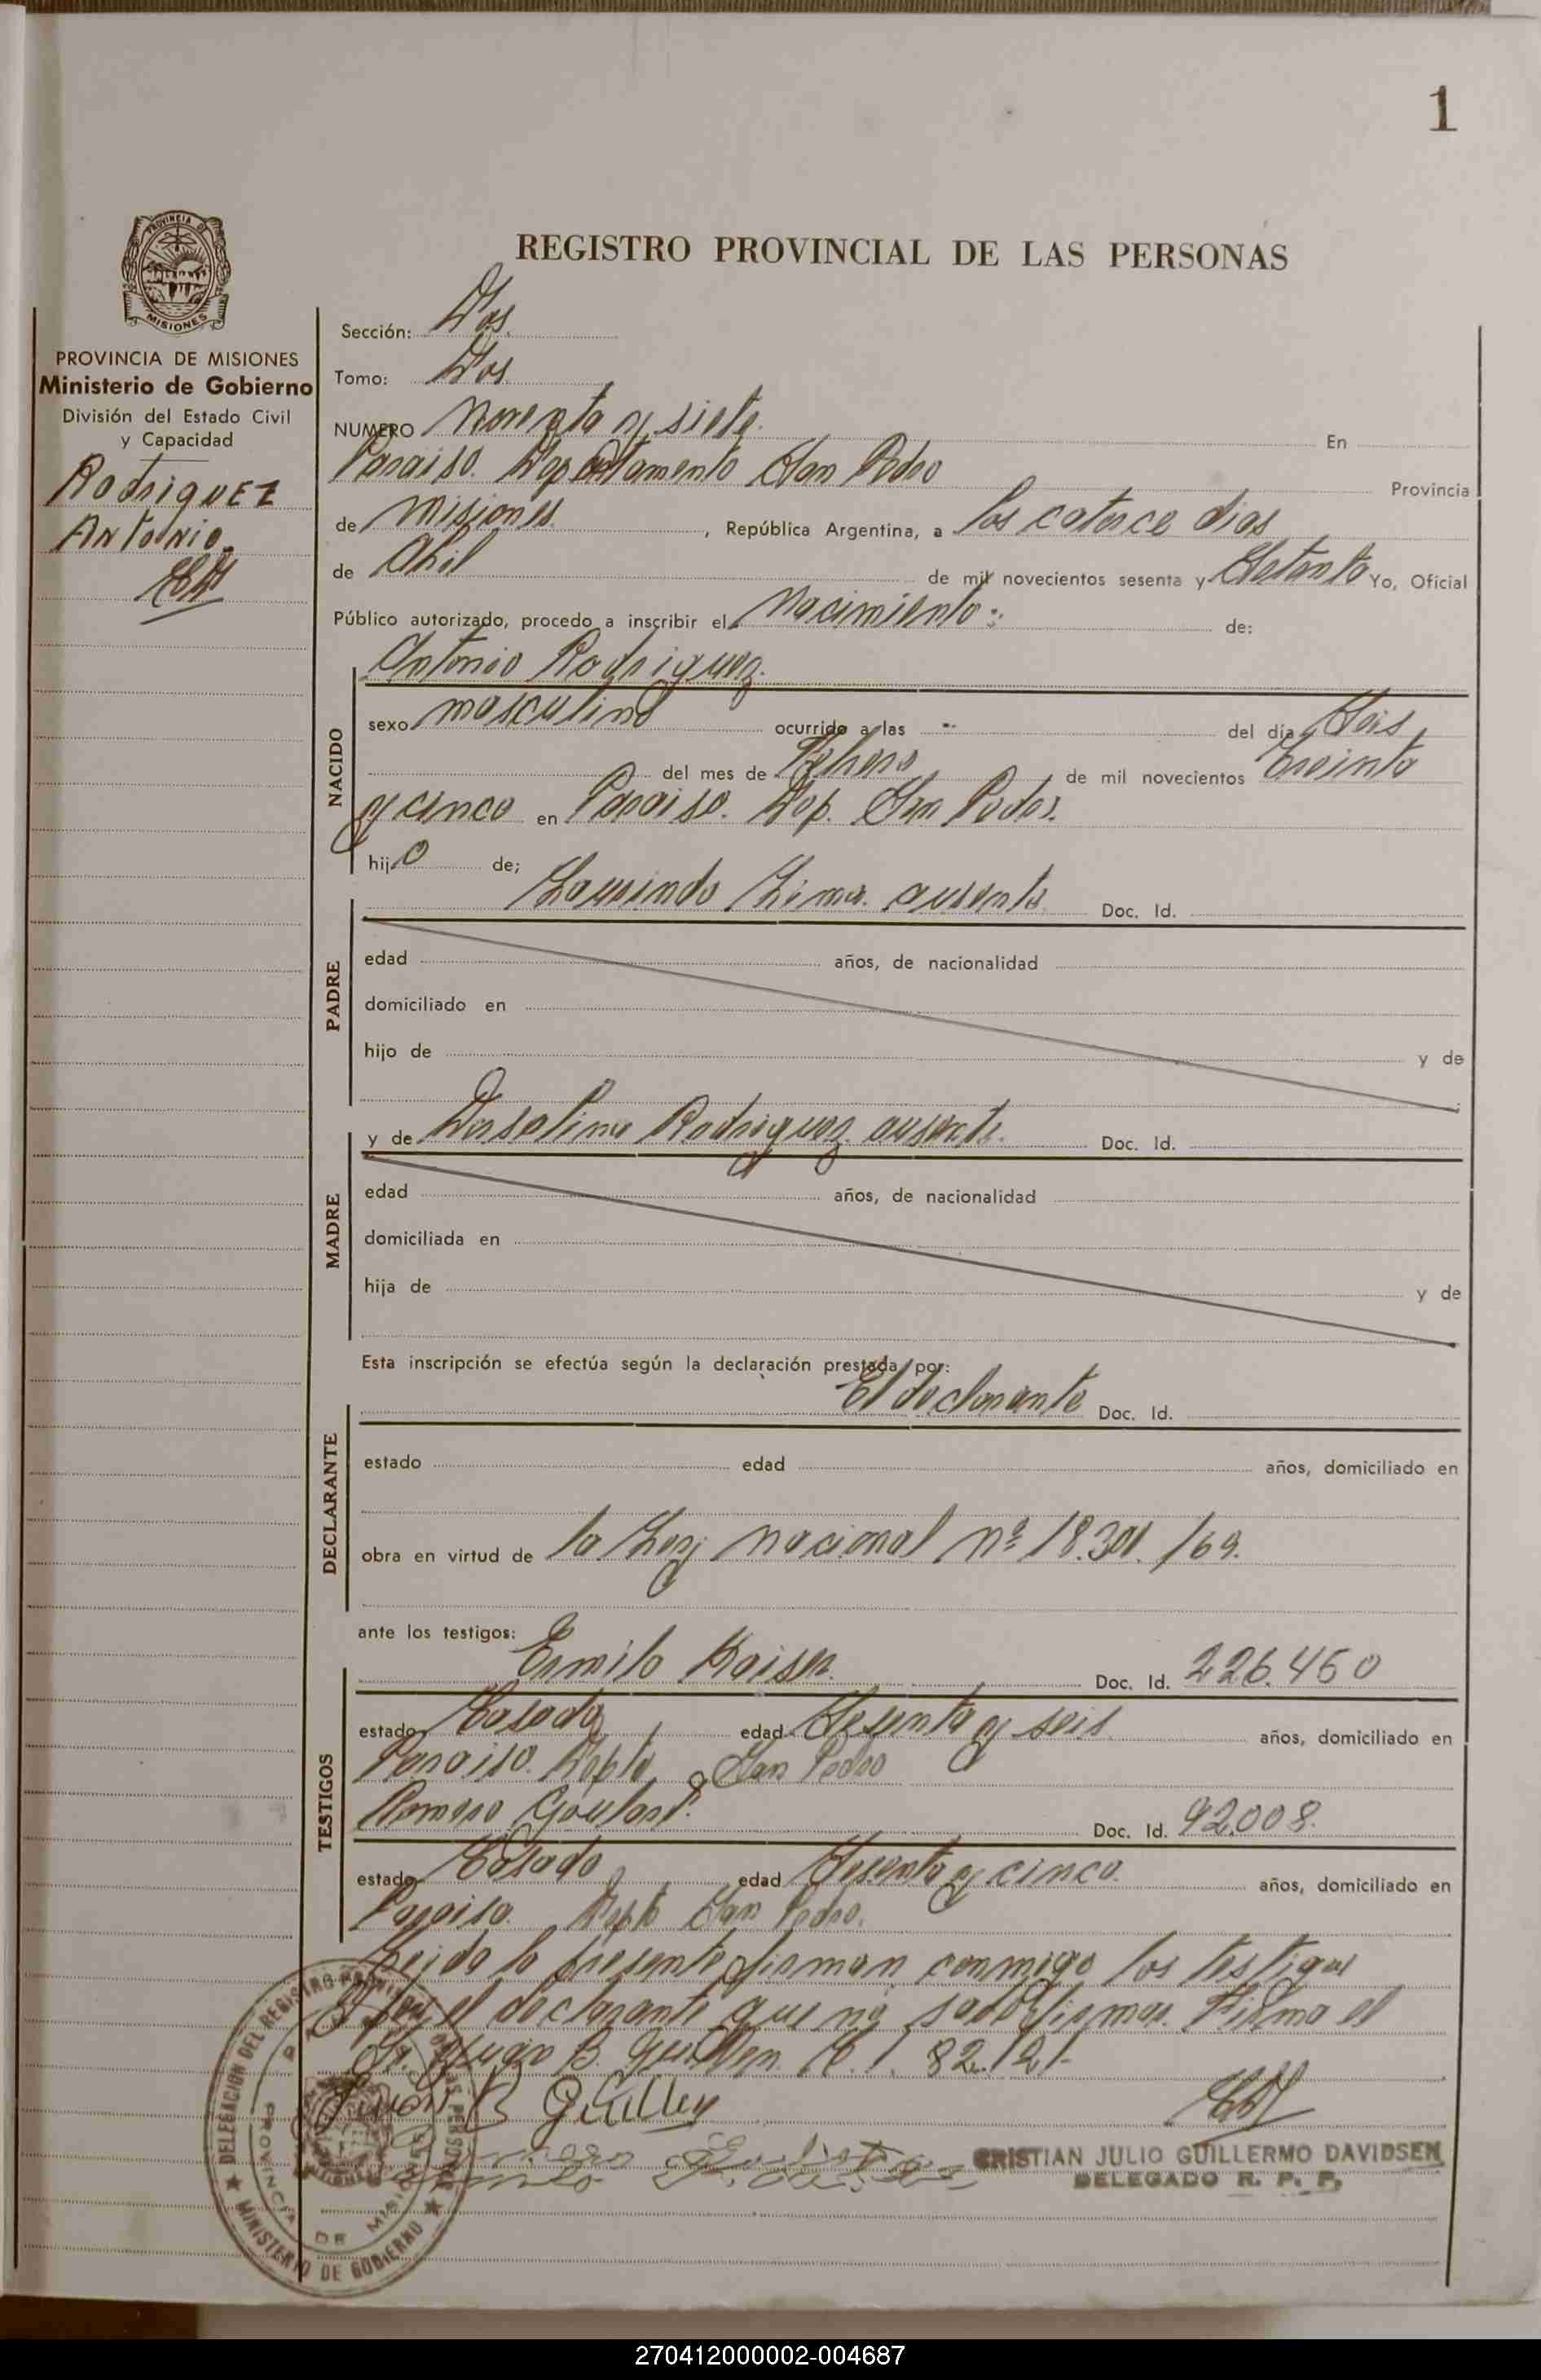 1
PROVINCIA DE
MISIONES
REGISTRO PROVINCIAL DE LAS PERSONAS
PROVINCIA DE MISIONES
Ministerio de Gobierno
División del Estado Civil
y Capacidad
RodriguEZ
Antonio
Sección: Dos
Tomo: Dos
NUMERO Noventa y siete. En
Paraiso. Departamento San Pedro Provincia
de Misiones, República Argentina, a los catorce dias
de Abril de mil novecientos sesenta y Setenta Yo, Oficial
Público autorizado, procedo a inscribir el Nacimiento: de:
Antonio Rodriguez.
NACIDO
sexo masculino ocurrido a las -- del día Seis
del mes de Febrero de mil novecientos treinta
y cinco en Paraiso. Dep. San Pedro.
hijo de;
PADRE
Laurindo Lima. ausente Doc. Id.
edad años, de nacionalidad
domiciliado en
hijo de y de
MADRE
y de Rodriguez. ausente. Doc. Id.
edad años, de nacionalidad
domiciliada en
hija de y de
Esta inscripción se efectúa según la declaración prestada por:
DECLARANTE
El declarante Doc. Id.
estado edad años, domiciliado en
obra en virtud de la Ley nacional nº 18.301./69.
ante los testigos:
TESTIGOS
Ermilo Kaiser. Doc. Id. 226.460
estado Casado, edad Sesenta y seis años, domiciliado en
Paraiso. Depto San Pedro
Romero Goulart. Doc. Id. 92.008.
estado Casado edad Sesenta y cinco. años, domiciliado en
Paraiso. Depto San Pedro.
Leida la presente firman conmigo los testigos
el declarante que no sabe firmar. Firma el
Sr. B. Guillen. 82.121.
B Guillen
CRISTIAN JULIO GUILLERMO DAVIDSEN
DELEGADO R. P. P.
DELEGACION DEL REGISTRO PROVINCIAL DE LAS PERSONAS
PROVINCIA DE MISIONES
MINISTERIO DE GOBIERNO
270412000002-004687